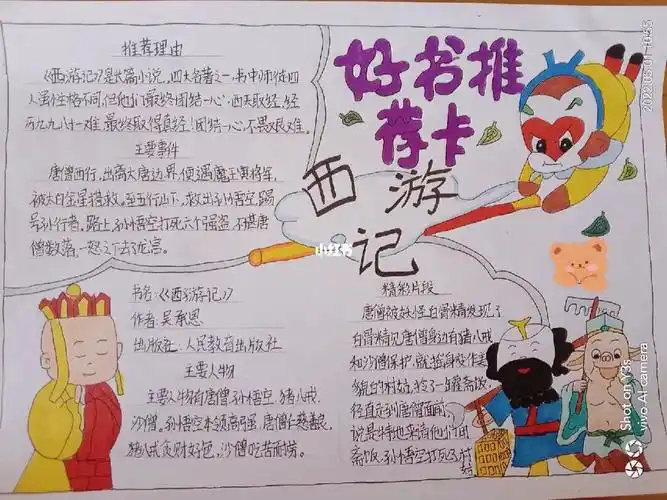 推荐理由
《西游记》是长篇小说,四大名著之一.书中师徒四
人虽性格不同,但他们最终团结一心,西天取经,经
历九九八十一难,最终取得真经!团结一心,不畏艰难。
主要事件
唐僧西行,出离大唐边界,便遇魔王寅将军,
被太白金星搭救。至五行山下,救出孙悟空,赐
号孙行者。路上,孙悟空打死六个强盗,不堪唐
僧数落,一怒之下去了龙宫。
好书推
荐卡
西游
记
小红书
书名:《西游记》
作者:吴承恩
出版社:人民教育出版社
主要人物
主要人物有唐僧、孙悟空、猪八戒,
沙僧。孙悟空本领高强,唐僧仁慈善良,
猪八戒贪财好色,沙僧吃苦耐劳。
精彩片段
唐僧被妖怪白骨精发现了
白骨精见唐僧身边有猪八戒
和沙僧保护,就摇身变作美
貌的村姑,拎了一罐斋饭,
径直走到唐僧面前,
说是特地来请他们用
斋饭.孙悟空打死了村
姑
Shot on Y3s
vivo AI camera